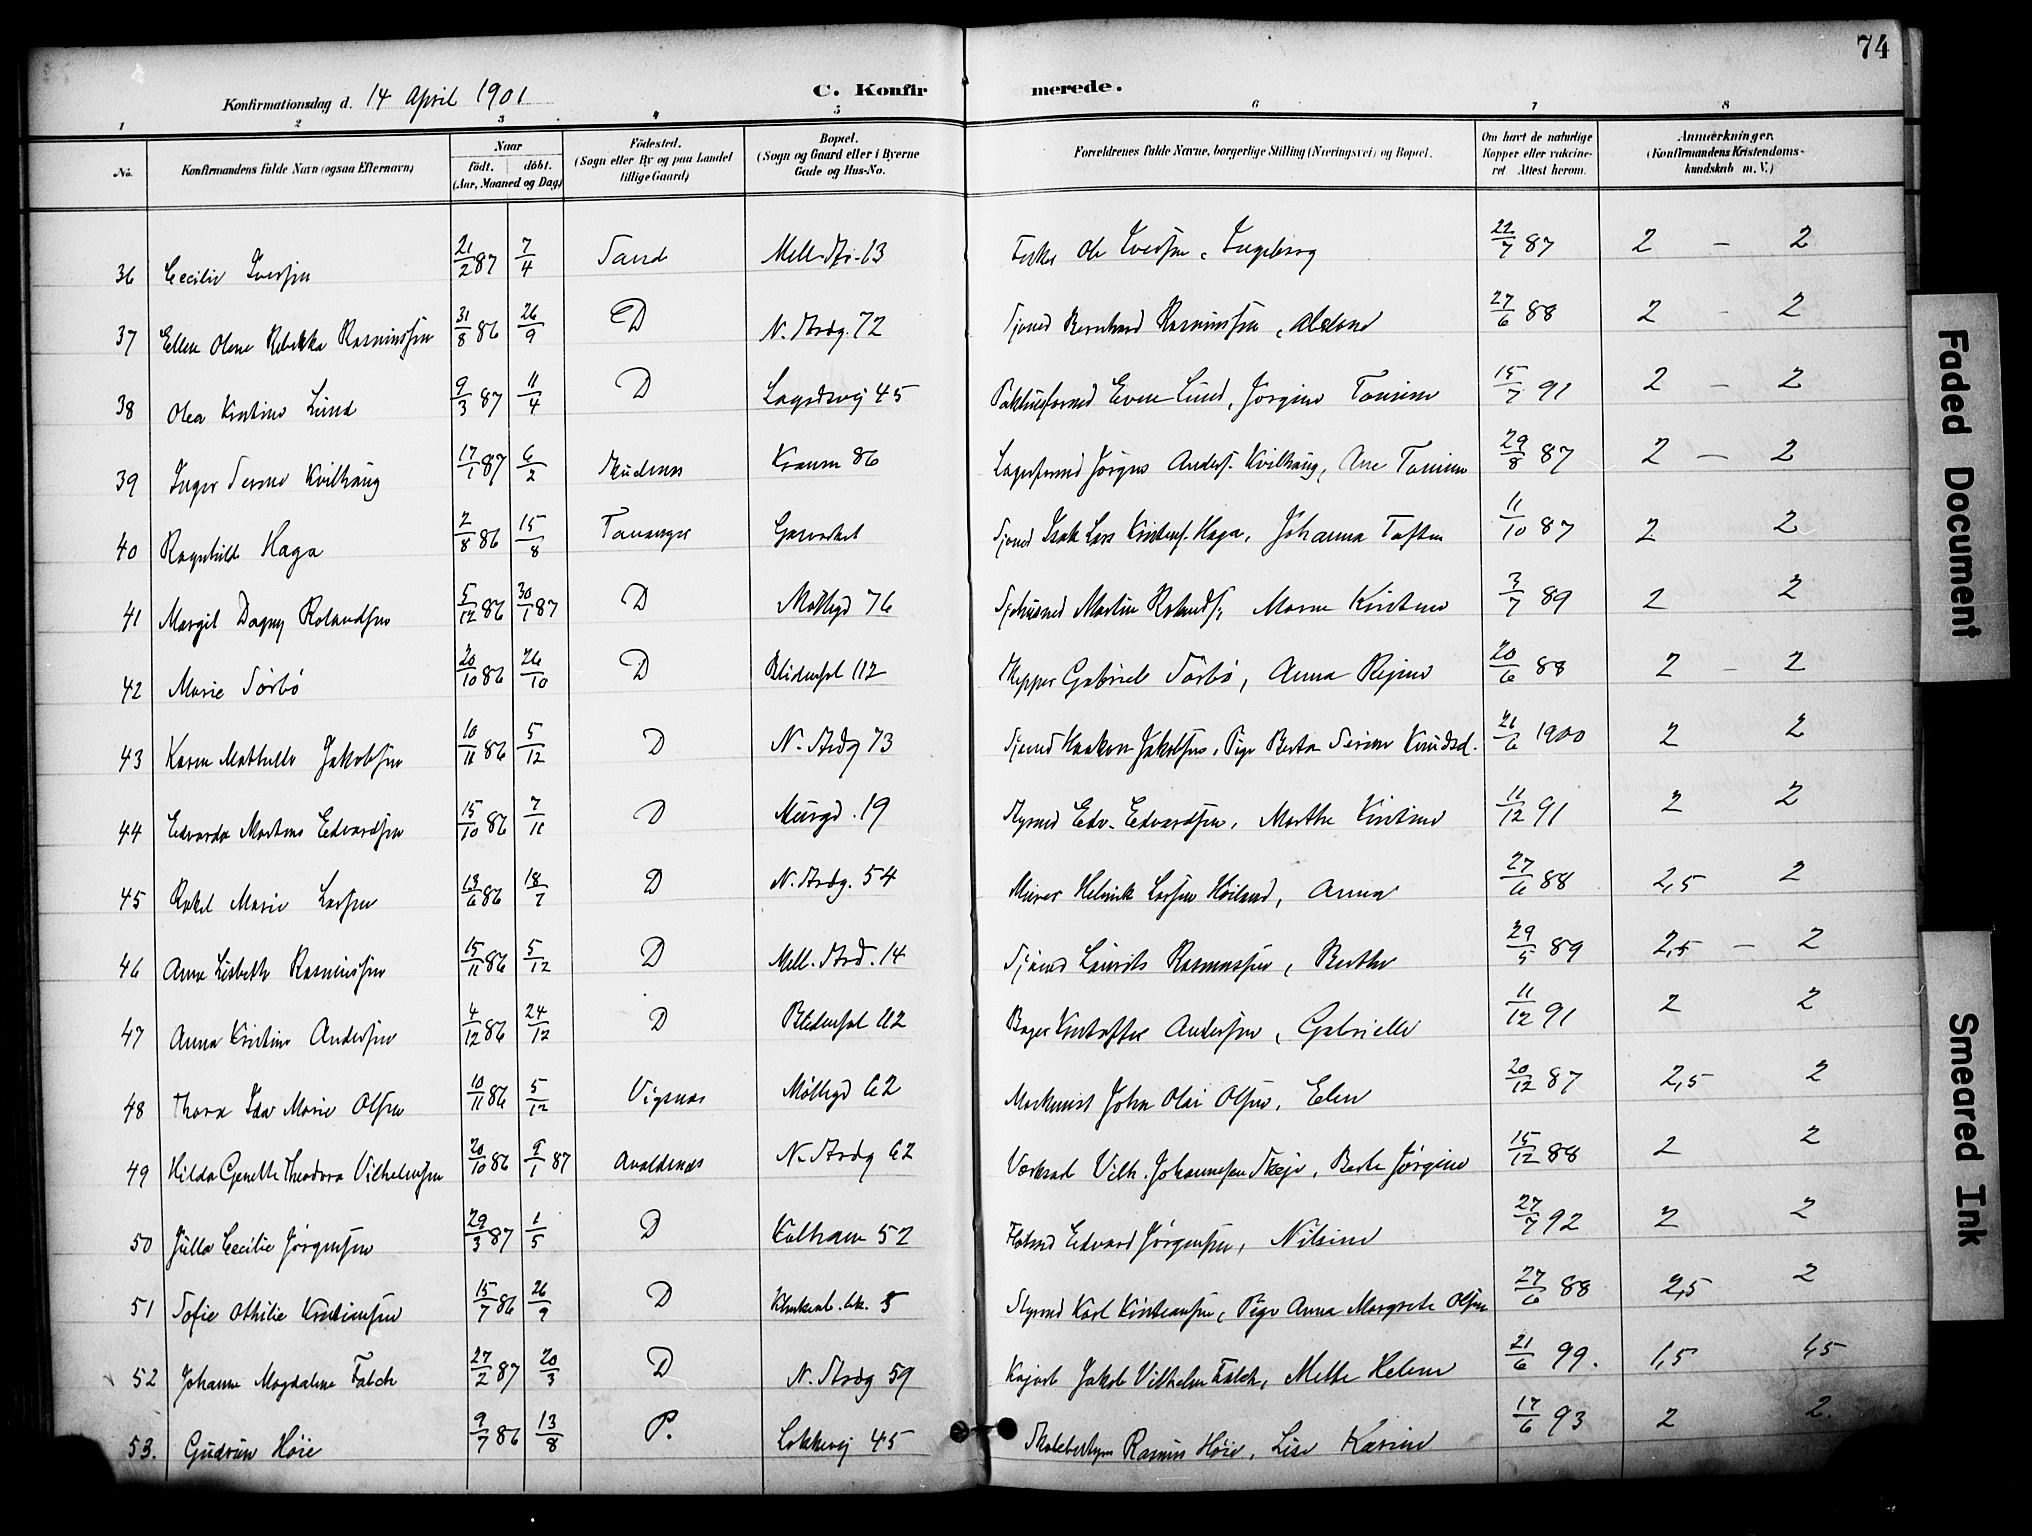 74
Konfirmationsdag d. 14 April 1901 C. Konfirmerede.
1 2 3 4 5 6 7 8
No. Konfirmandens fulde Navn (ogsaa Efternavn) Naar födt. döbt. (Aar, Maaned og Dag) Födested. (Sogn eller By og paa Landet tillige Gaard) Bopæl. (Sogn og Gaard eller i Byerne Gade og Hus-No. Forældrenes fulde Navne, borgerlige Stilling (Næringsvei) og Bopæl. Om havt de naturlige Kopper eller vakcineret Attest herom. Anmærkninger. (Konfirmandens Kristendomskundskab m. V.)
36 Cecilie Iversen 21/2 87 7/4 Sand Mell. Str. 13 Ole Iversen, Ingeborg 22/7 87 2 - 2
37 Ellen Olene Rebekka Rasmussen 31/8 86 26/9 D N. Strdg. 72 Sjømd Bernhard Rasmussen, 27/6 88 2 - 2
38 Olea Kristine Lund 9/3 87 11/4 D 45 Even Lund, Jørgine Tomine 15/7 91 2 - 2
39 Inger Serine Kvilhaug 17/1 87 6/2 Skudenes 86 Jørgen Anders. Kvilhaug, Ane Tomine 29/8 87 2 - 2
40 Ragnhild Haga 2/8 86 15/8 Tananger Sjømd Isak Lars Kristens. Haga, Johanna 11/10 87 2 2
41 Margit Dagny Rolandsen 5/12 86 30/1 87 D Møllegd 76 Martin Rolands., Maren Kristine 3/7 89 2 2
42 Marie Sørbø 20/10 86 26/10 D Blidensol 112 Skipper Gabriel Sørbø, Anna Regine 20/6 88 2 - 2
43 Karen Mathilde Jakobsen 10/11 86 5/12 D N. Strdg 73 Sjømd Haakon Jakobsen, Pige Berta Serine Knudsd. 21/6 1900 2 2
44 Edvarda Martine Edvardsen 15/10 86 7/11 D Murgd. 19 Styrmd Edv. Edvardsen, Marthe Kristine 11/12 91 2 2
45 Rakel Marie Larsen 13/6 86 18/7 D N. Strdg. 54 Murer Helmik Larsen Høiland, Anna 27/6 88 2,5 2
46 Anna Lisbeth Rasmussen 15/11 86 5/12 D Mell. Strd. 14 Sjømd Laurits Rasmussen, Berthe 29/5 89 2,5 - 2
47 Anna Kristine Andersen 4/12 86 24/12 D Blidensol 112 Bager Kristoffer Andersen, Gabrielle 11/12 91 2 2
48 Thora Ida Marie Olsen 10/11 86 5/12 Vigsnæs Møllegd 62 Maskinist John Olai Olsen, Elen 20/12 87 2,5 2
49 Hilda Genette Theodora Vilhelmsen 20/10 86 9/1 87 Avaldsnæs N. Strdg 62 Vilh. Johannesen Skeje, Berte Jørgine 15/12 88 2 2
50 Julla Cecilie Jørgensen 29/3 87 1/5 D Kalham 52 Edvard Jørgensen, Nilsine 27/7 92 2 2
51 Sofie Othilie Kristiansen 15/7 86 26/9 D 5 Styrmd Karl Kristiansen, Pige Anna Margrete Olsen 27/6 88 2,5 2
52 Johanne Magdalene Falck 27/2 87 20/3 D N. Strdg 59 Jakob Vilhelm Falck, Mette Helene 21/6 99. 1,5 1,5
53. Gudrun Høie 9/7 86 13/8 P. Løkkevej 45 Skolebestyrer Rasmus Høie, Lise Karine 17/6 93 2 2.
Faded Document
Smeared Ink